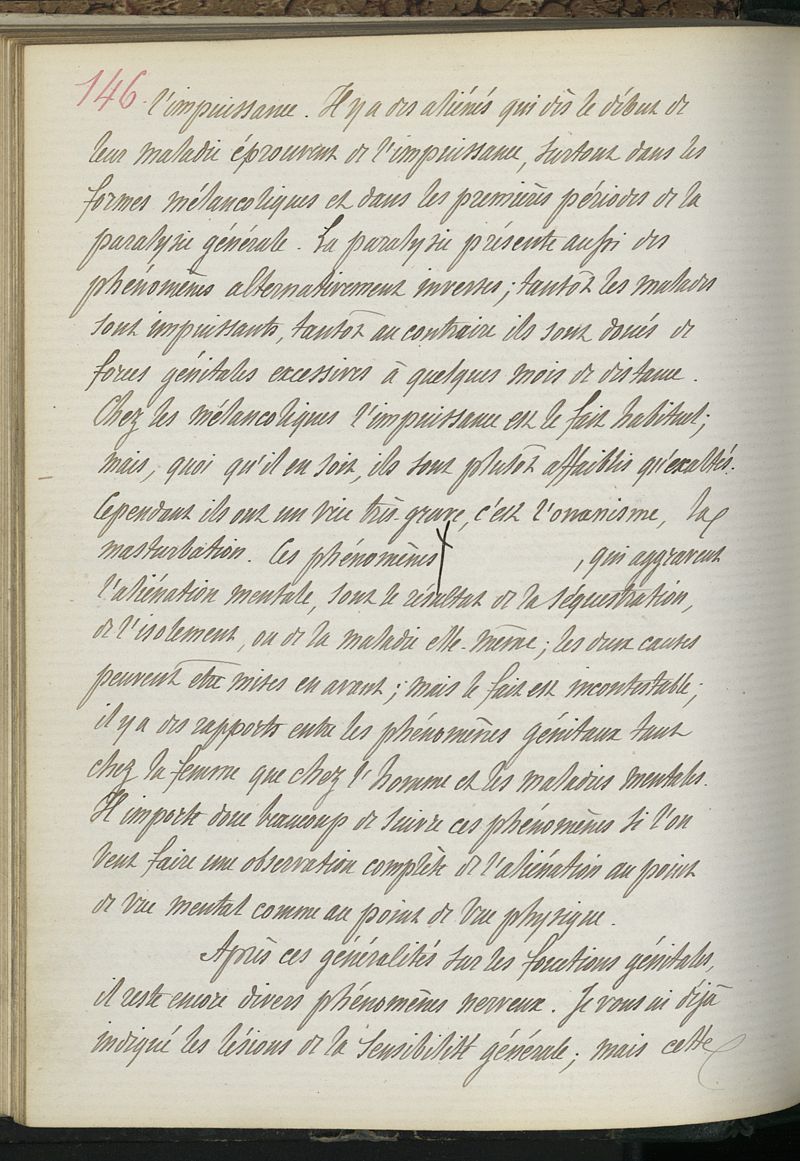 146. l'impuissance. Il y a des aliénés qui dès le début de
leur maladie éprouvent de l'impuissance, surtout dans les
formes mélancoliques et dans les premières périodes de la
paralysie générale. La paralysie présente aussi des
phénomènes alternativement inverses; tantôt les malades
sont impuissants, tantôt au contraire ils sont doués de
forces génitales excessives à quelques mois de distance.
Chez les mélancoliques l'impuissance est le fait habituel;
mais, quoi qu'il en soit, ils sont plutôt affaiblis qu'exaltés.
Cependant ils ont un vice très-grave, c'est l'onanisme, la
masturbation. Ces phénomènes , qui aggravent
l'aliénation mentale, sont le résultat de la séquestration,
de l'isolement, ou de la maladie elle-même; les deux causes
peuvent être mises en avant; mais le fait est incontestable;
il y a des rapports entre les phénomènes génitaux tant
chez la femme que chez l'homme et les maladies mentales.
Il importe donc beaucoup de suivre ces phénomènes si l'on
veut faire une observation complète de l'aliénation au point
de vue mental comme au point de vue physique.
Après ces généralités sur les fonctions génitales,
il reste encore divers phénomènes nerveux. Je vous ai déjà
indiqué les lésions de la sensibilité générale; mais cette